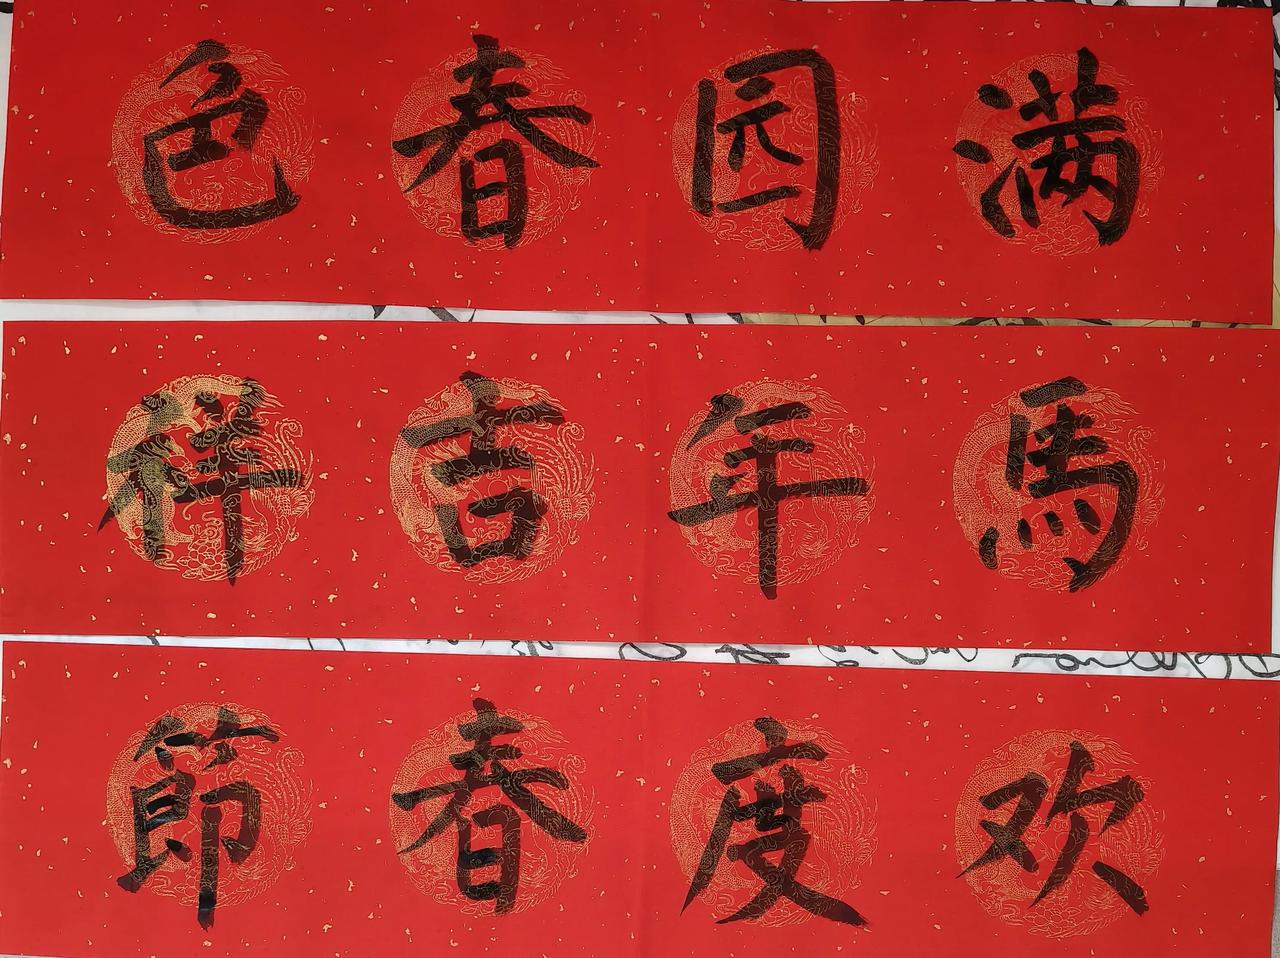 满园春色
馬年吉祥
欢度春節